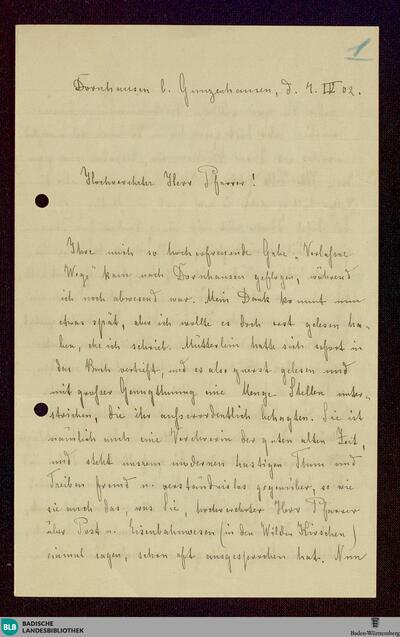 1
Dornhausen b. Gunzenhausen, d. 7. IV 02.
Hochverehrter Herr Pfarrer!
Ihre mich so hocherfreuende Gabe „Verlassene
Wege" kam nach Dornhausen geflogen, während
ich noch abwesend war. Mein Dank kommt nun
etwas spät, aber ich wollte es doch erst gelesen ha-
ben, ehe ich schrieb. Mütterlein hatte sich sofort in
das Buch vertieft, und es also zuerst gelesen und
mit großer Genugthuung eine Menge Stellen unter-
strichen, die ihr außerordentlich behagten. Sie ist
nämlich auch eine Verehrerin der guten alten Zeit,
und steht unserm modernen hastigen Thun und
Treiben fremd u. verständnislos gegenüber, so wie
sie auch das, was Sie, hochverehrter Herr Pfarrer
über Post u. Eisenbahnwesen (in den Wilden Kirschen)
einmal sagen, schon oft ausgesprochen hat. Nun
BLB
BADISCHE
LANDESBIBLIOTHEK
Baden-Württemberg